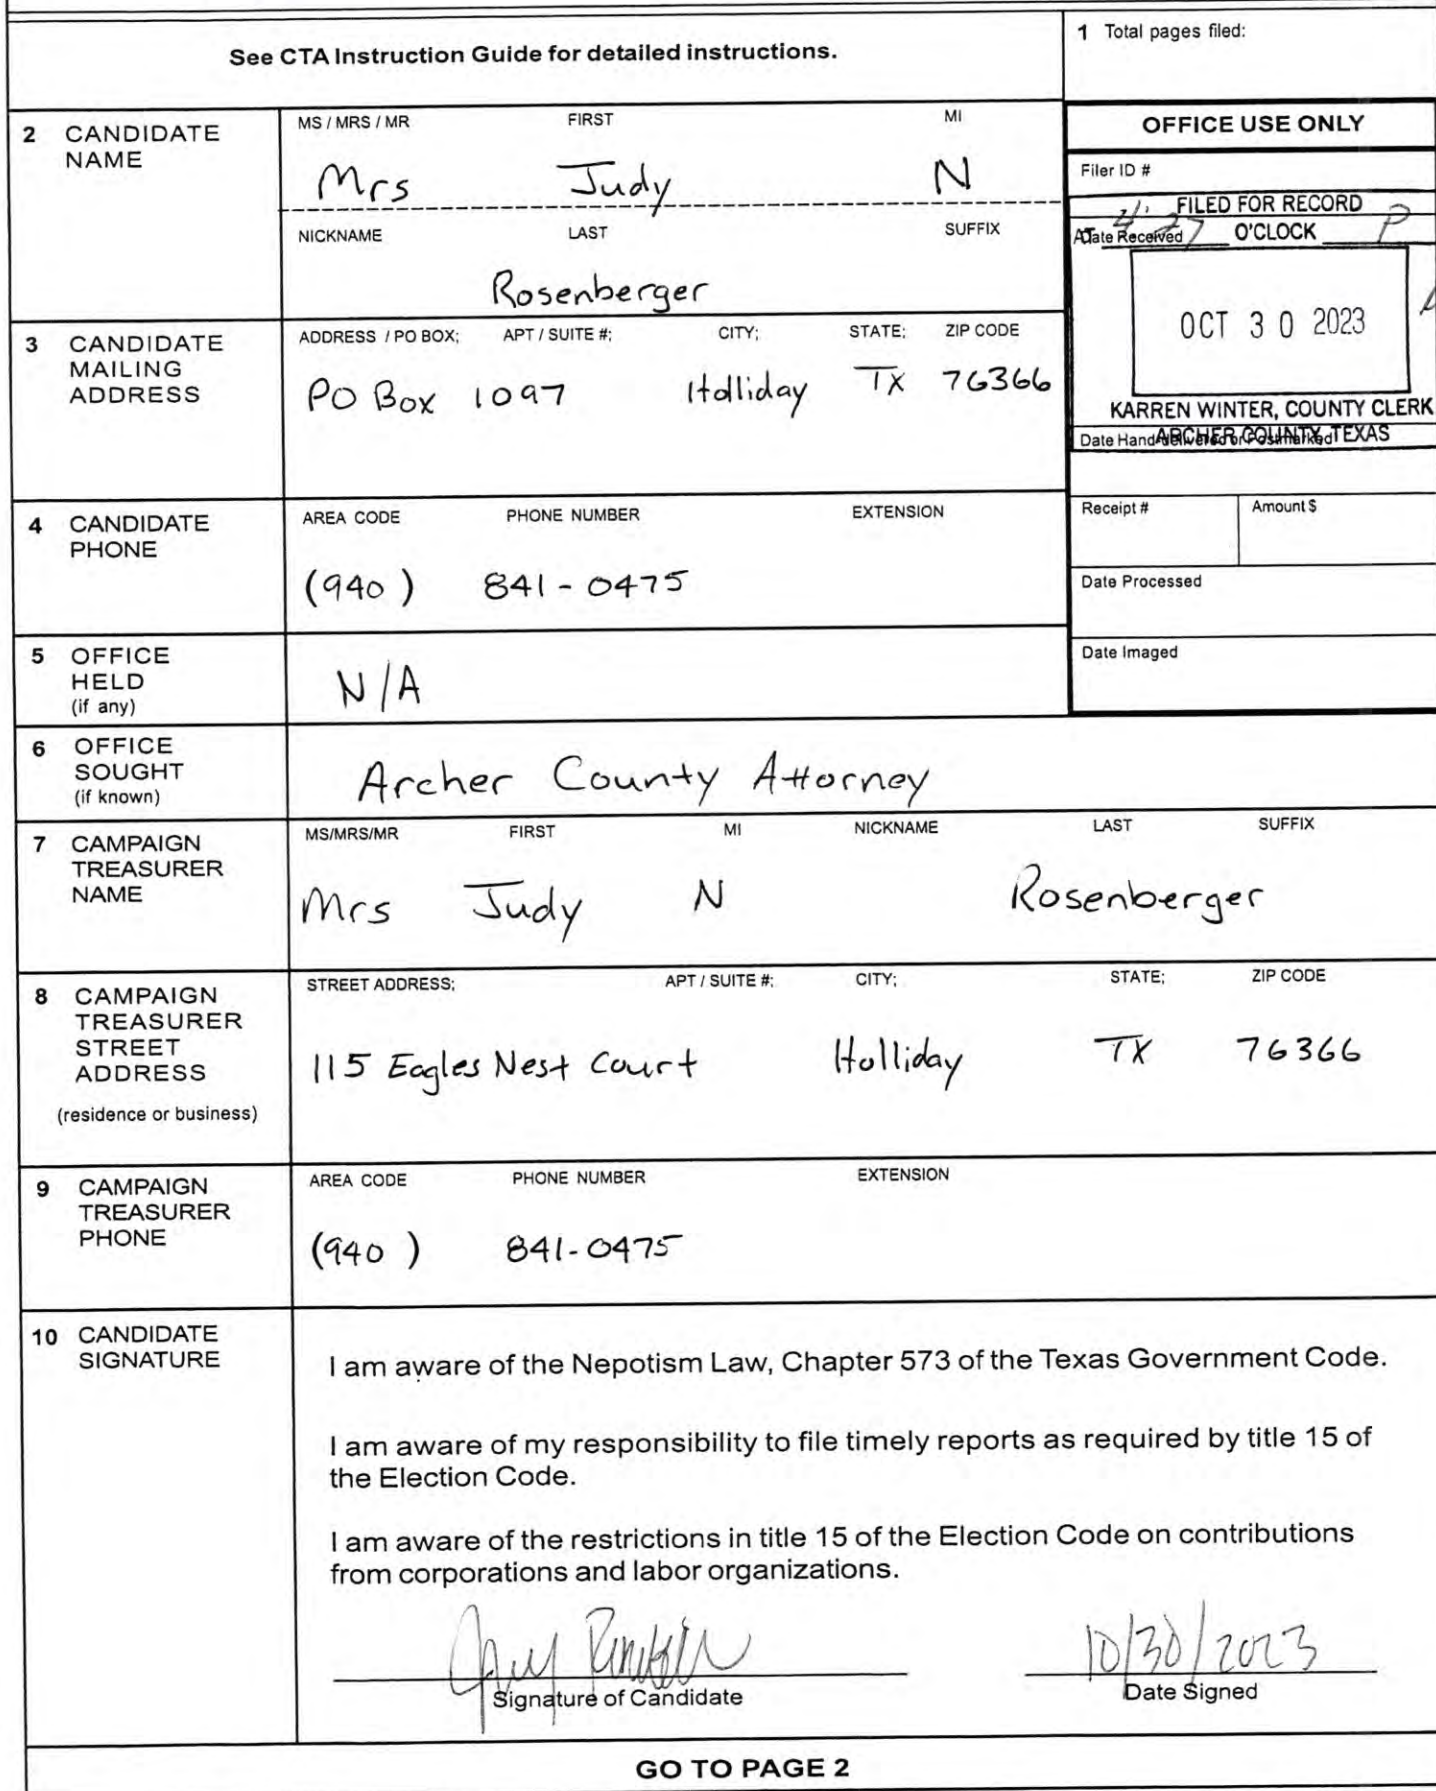 See CTA Instruction Guide for detailed instructions.
1 Total pages filed:
2 CANDIDATE NAME
MS / MRS / MR FIRST MI
Mrs Judy N
NICKNAME LAST SUFFIX
Rosenberger
OFFICE USE ONLY
Filer ID #
FILED FOR RECORD
AT 4:27 O'CLOCK P
Date Received
OCT 30 2023
KARREN WINTER, COUNTY CLERK
ARCHER COUNTY, TEXAS
Date Hand-delivered or Postmarked
Receipt # Amount $
Date Processed
Date Imaged
3 CANDIDATE MAILING ADDRESS
ADDRESS / PO BOX; APT / SUITE #; CITY; STATE; ZIP CODE
PO Box 1097 Holliday TX 76366
4 CANDIDATE PHONE
AREA CODE PHONE NUMBER EXTENSION
(940) 841-0475
5 OFFICE HELD (if any)
N/A
6 OFFICE SOUGHT (if known)
Archer County Attorney
7 CAMPAIGN TREASURER NAME
MS/MRS/MR FIRST MI NICKNAME LAST SUFFIX
Mrs Judy N Rosenberger
8 CAMPAIGN TREASURER STREET ADDRESS (residence or business)
STREET ADDRESS; APT / SUITE #; CITY; STATE; ZIP CODE
115 Eagles Nest Court Holliday TX 76366
9 CAMPAIGN TREASURER PHONE
AREA CODE PHONE NUMBER EXTENSION
(940) 841-0475
10 CANDIDATE SIGNATURE
I am aware of the Nepotism Law, Chapter 573 of the Texas Government Code.
I am aware of my responsibility to file timely reports as required by title 15 of
the Election Code.
I am aware of the restrictions in title 15 of the Election Code on contributions
from corporations and labor organizations.
10/30/2023
Signature of Candidate Date Signed
GO TO PAGE 2